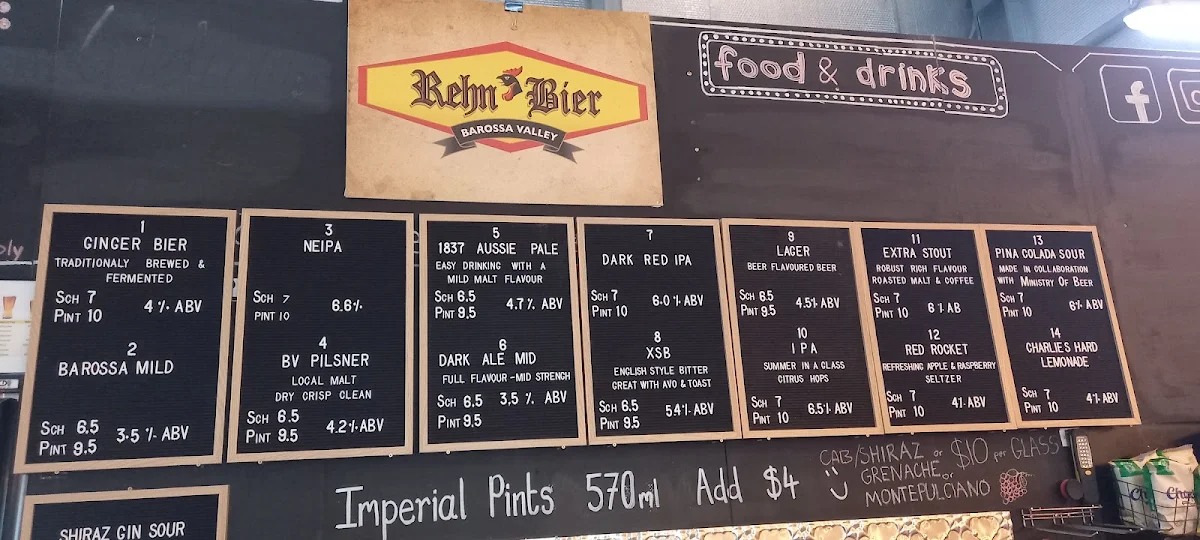 Rehn Bier
BAROSSA VALLEY
food & drinks
f
1
GINGER BIER
TRADITIONALY BREWED &
FERMENTED
SCH 7
PINT 10
4 % ABV
2
BAROSSA MILD
SCH 6.5
PINT 9.5
3.5 % ABV
3
NEIPA
SCH 7
PINT 10
6.6%
4
BV PILSNER
LOCAL MALT
DRY CRISP CLEAN
SCH 6.5
PINT 9.5
4.2% ABV
5
1837 AUSSIE PALE
EASY DRINKING WITH A
MILD MALT FLAVOUR
SCH 6.5
PINT 9.5
4.7 % ABV
6
DARK ALE MID
FULL FLAVOUR -MID STRENGH
SCH 6.5
PINT 9.5
3,5 % ABV
7
DARK RED IPA
SCH 7
PINT 10
6.0 % ABV
8
XSB
ENGLISH STYLE BITTER
GREAT WITH AVO & TOAST
SCH 6.5
PINT 9.5
5.4% ABV
9
LAGER
BEER FLAVOURED BEER
SCH 6.5
PINT 9.5
4.5% ABV
10
IPA
SUMMER IN A GLASS
CITRUS HOPS
SCH 7
PINT 10
6.5% ABV
11
EXTRA STOUT
ROBUST RICH FLAVOUR
ROASTED MALT & COFFEE
SCH 7
PINT 10
6% AB
12
RED ROCKET
REFRESHING APPLE & RASPBERRY
SELTZER
SCH 7
PINT 10
4% ABV
13
PINA COLADA SOUR
MADE IN COLLABORATION
WITH MINISTRY OF BEER
SCH 7
PINT 10
6% ABV
14
CHARLIES HARD
LEMONADE
SCH 7
PINT 10
4% ABV
Imperial Pints 570ml Add $4
CAB/SHIRAZ or $10 per GLASS
GRENACHE or
MONTEPULCIANO
SHIRAZ GIN SOUR